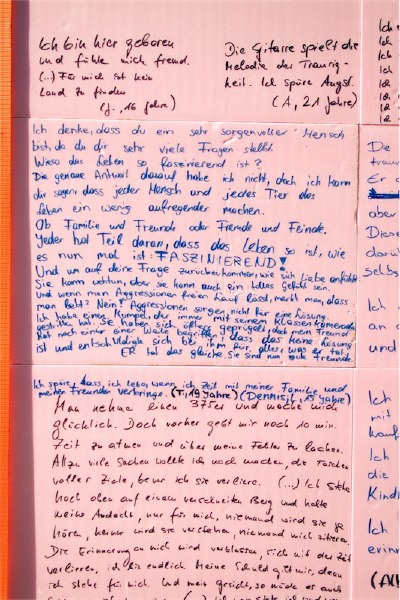 Ich bin hier geboren
und fühle mich fremd.
(...) Für mich ist kein
Land zu finden
(J., 16 Jahre)
Die Gitarre spielt die
Melodie der Traurig-
keit. Ich spüre Angst.
(A, 21 Jahre)
Ich denke, dass du ein sehr sorgenvoller Mensch
bist, da du dir sehr viele Fragen stellst.
Wieso das Leben so faszinierend ist?
Die genaue Antwort darauf habe ich nicht, doch ich kann
dir sagen, dass jeder Mensch und jedes Tier das
Leben ein wenig aufregender machen.
Ob Familie und Freunde oder Fremde und Feinde.
Jeder hat Teil daran, dass das Leben so ist, wie
es nun mal ist: FASZINIEREND!
Und um auf deine Frage zurückzukommen, wie sich Liebe anfühlt:
Sie kann wehtun, aber sie kann auch ein tolles Gefühl sein.
Und wenn man Aggressionen freien Lauf lässt, merkt man, dass
man lebt? Nein! Aggressionen sorgen nicht für eine Lösung.
Ich habe einen Kumpel, der immer mit seinem Klassenkameraden
gestritten hat. Sie haben sich öfters geprügelt, doch mein Freund
hat nach einer Weile begriffen, dass das keine Lösung
ist und entschuldigte sich bei ihm für alles, was er tat,
ER tat das gleiche. Sie sind nun gute Freunde.
(Dennis F., 15 Jahre)
Ich spüre, dass ich lebe, wenn ich Zeit mit meiner Familie und
meinen Freunden verbringe. (T, 19 Jahre)
Man nehme einen 375er und mache mich
glücklich. Doch vorher gebt mir noch 10 min.
Zeit zu atmen und über meine Fehler zu lachen.
Allzu viele Sachen wollte ich noch machen, die Taschen
voller Ziele, bevor ich sie verliere. (...) Ich stehe
hoch oben auf einem verschneiten Berg und halte
meine Andacht, nur für mich, niemand wird sie je
hören, keiner wird sie verstehen, niemand mich zitieren.
Die Erinnerung an mich wird verblassen, sich mit der Zeit
verlieren, ich bin endlich Meine Schuld quitt mir, denn
ich stehe für mich. Und mein Gesicht, so würde es auch
Ich
Ich
Ich
Ich
Ich
Ich
De
trau
aber
Diese
darü
selbs
Ich
an
und
Ich
mit
kauf
Ich
die
Kind
Ich
erinn